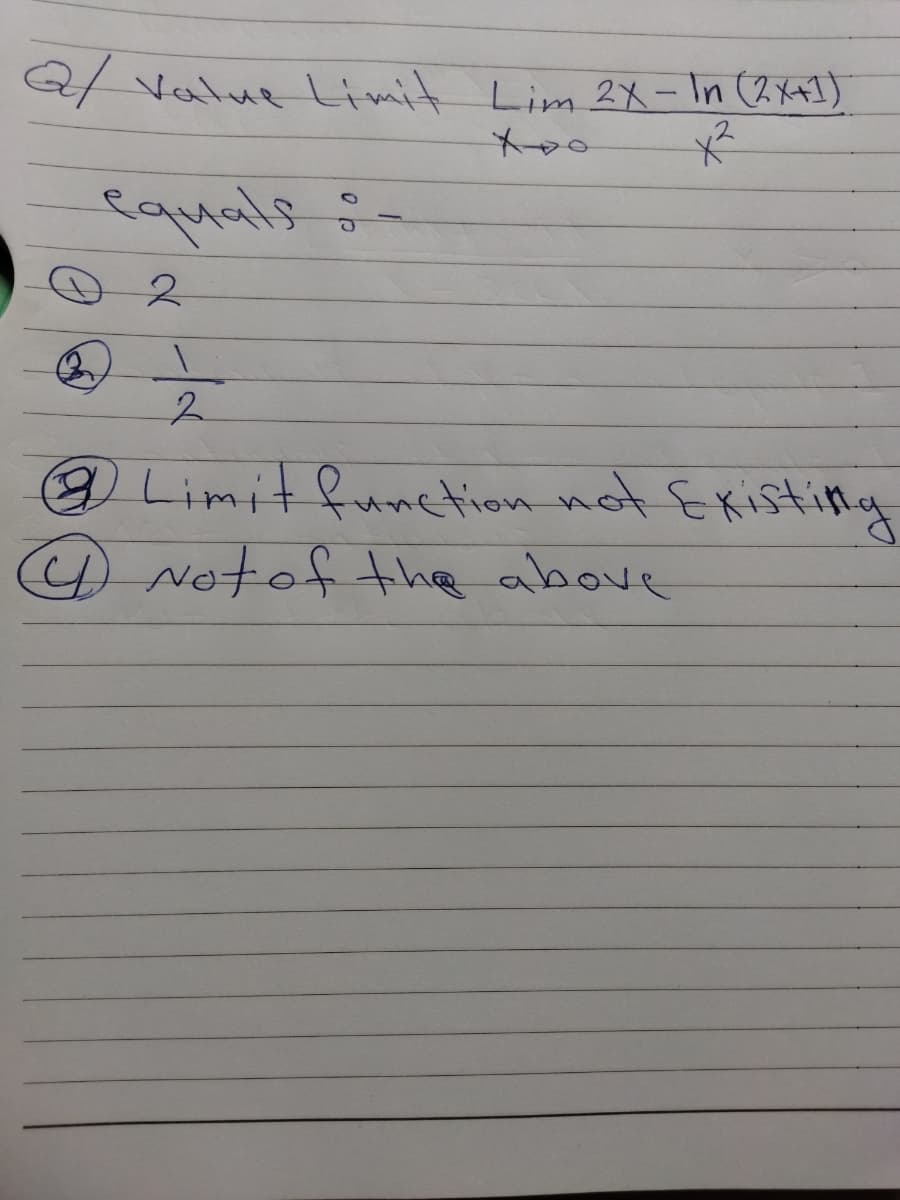 Q/ Value Limit Lim 2X - ln (2X+1)
X→0 X²
equals :-
① 2
② 1
2
③ Limit function not Existing
④ Not of the above